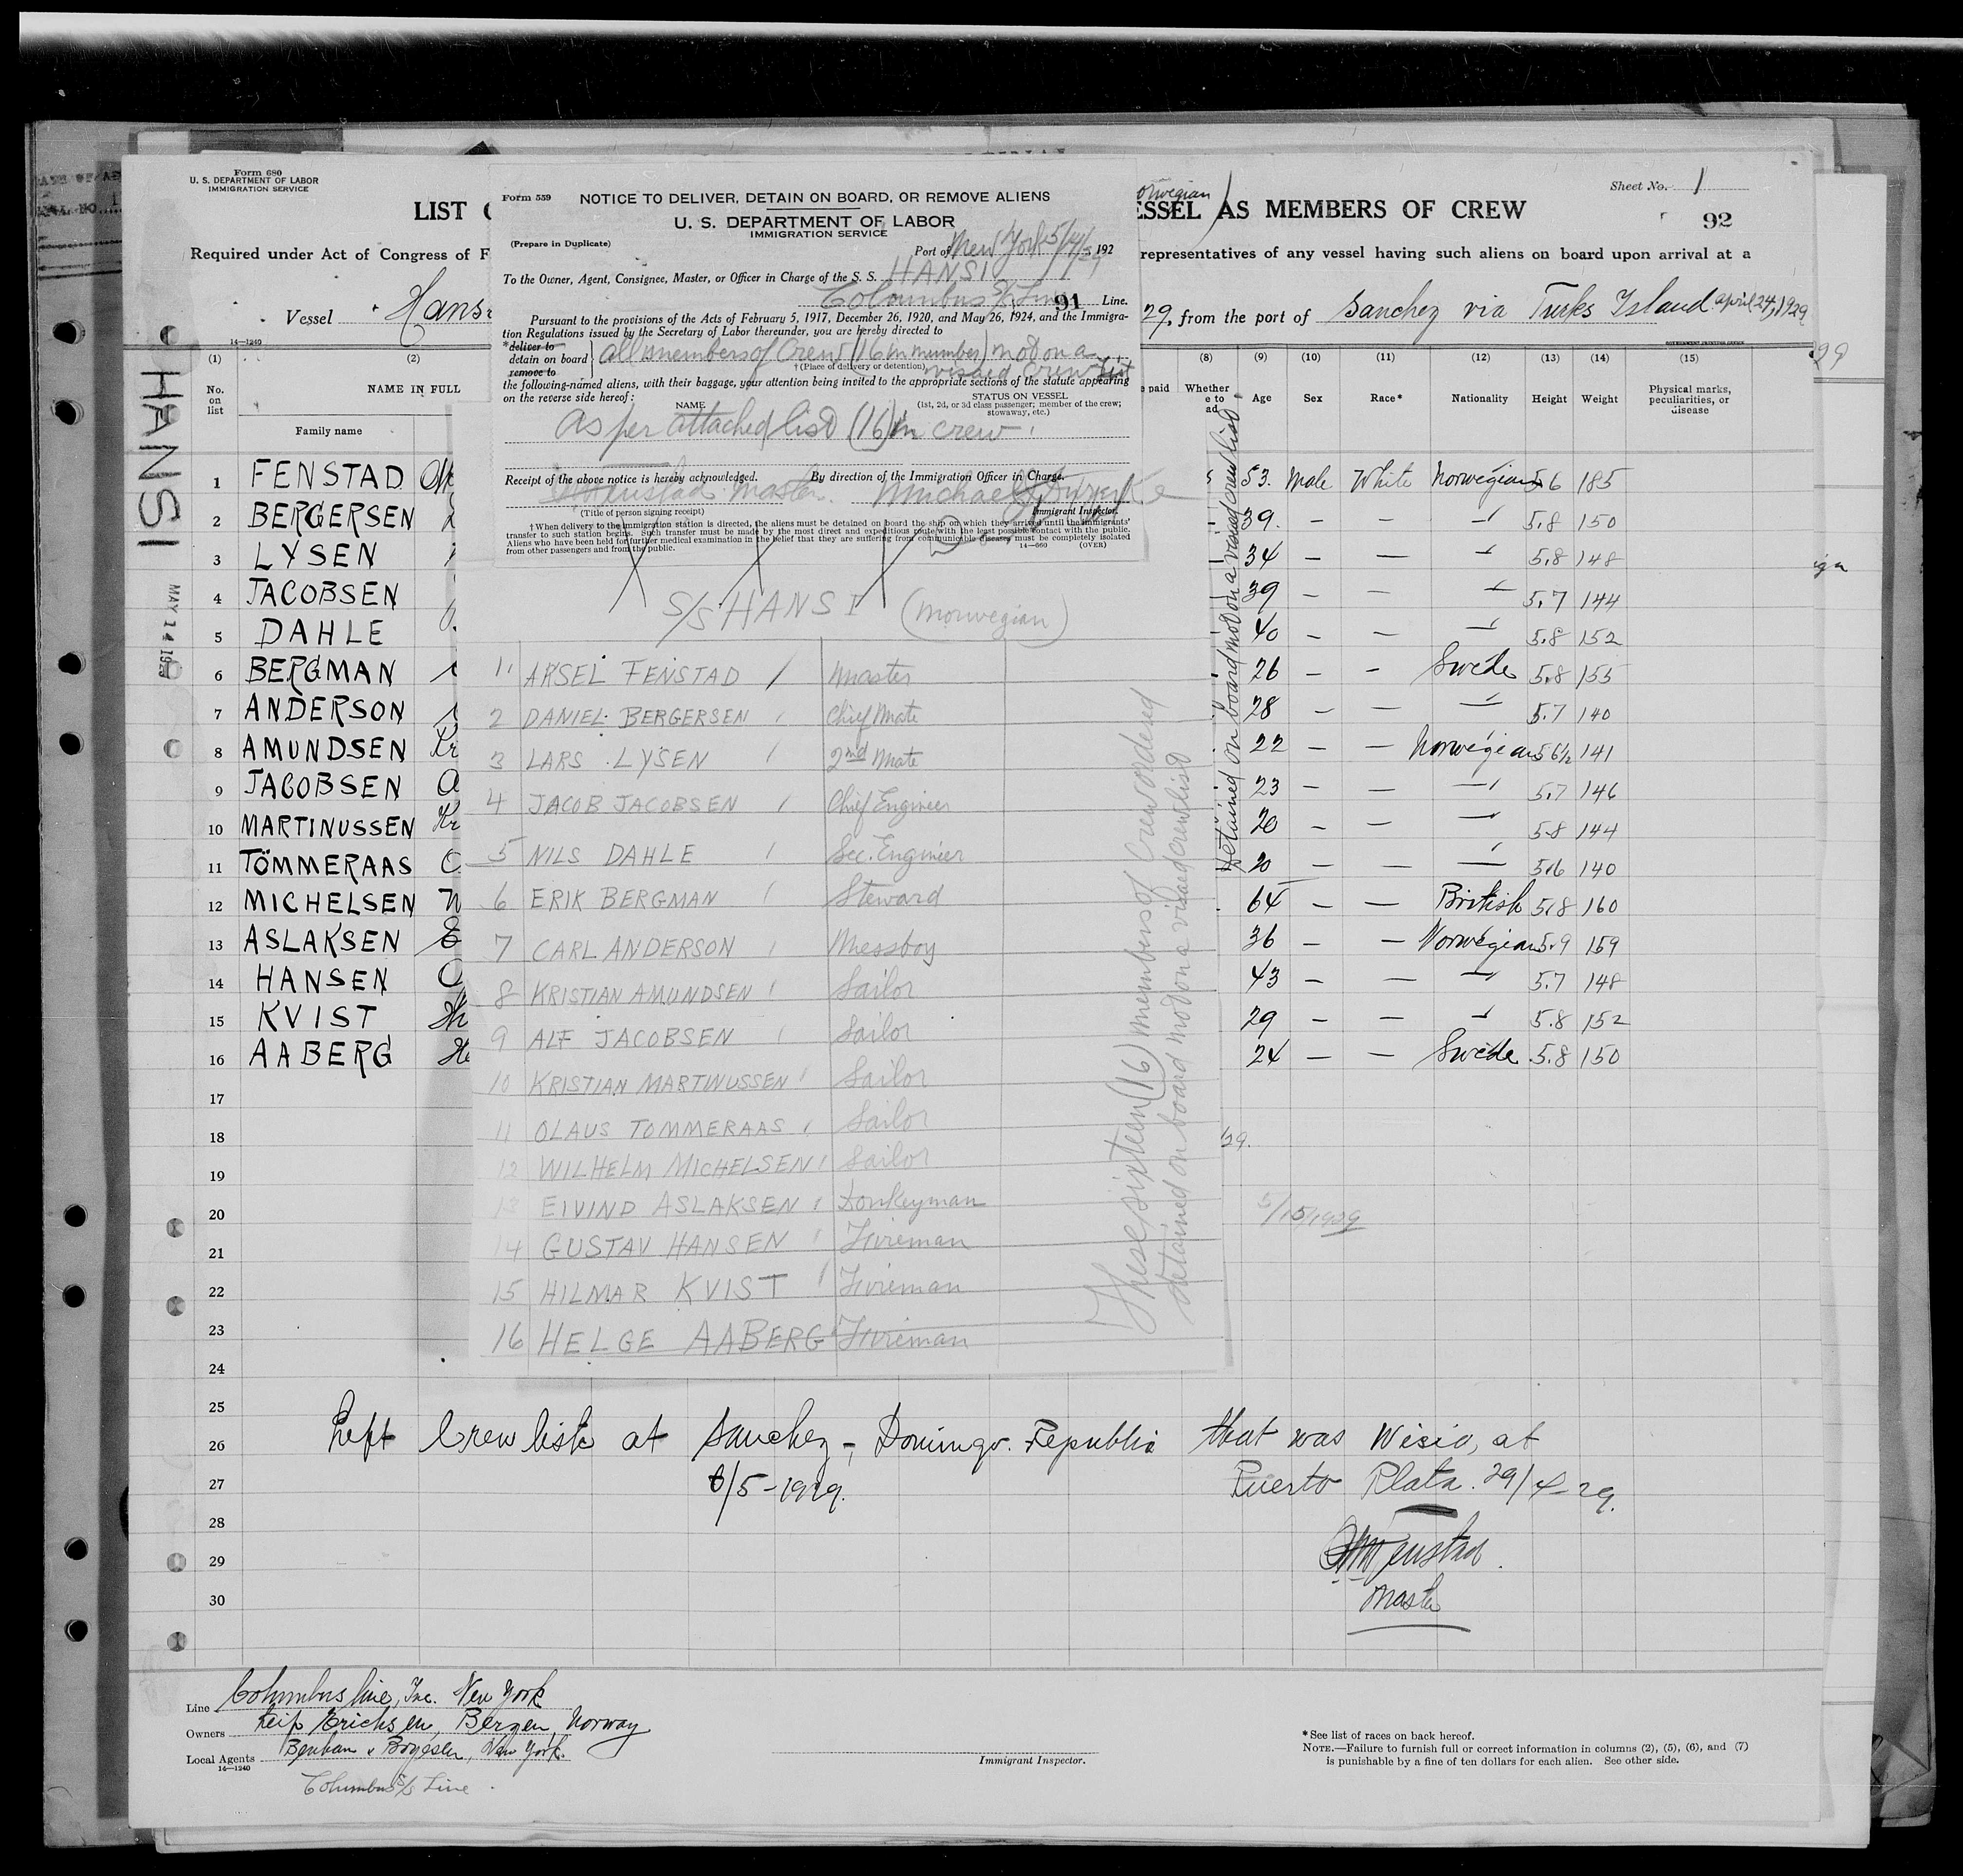 Form 680
U. S. DEPARTMENT OF LABOR
IMMIGRATION SERVICE
LIST
Required under Act of Congress of F
Vessel
14—1240
(1) (2)
No. on list
NAME IN FULL
Family name
HANSI
MAY 14 1929
1 FENSTAD
2 BERGERSEN
3 LYSEN
4 JACOBSEN
5 DAHLE
6 BERGMAN
7 ANDERSON
8 AMUNDSEN Kr
9 JACOBSEN A
10 MARTINUSSEN Kr
11 TÖMMERAAS O
12 MICHELSEN W
13 ASLAKSEN E
14 HANSEN
15 KVIST
16 AABERG He
17
18
19
20
21
22
23
24
25
26
27
28
29
30
Form 559
NOTICE TO DELIVER, DETAIN ON BOARD, OR REMOVE ALIENS
U. S. DEPARTMENT OF LABOR
IMMIGRATION SERVICE
(Prepare in Duplicate)
Port of New York 5/14/29, 192
To the Owner, Agent, Consignee, Master, or Officer in Charge of the S. S. HANSI
Columbus S/S Line 91 Line.
Pursuant to the provisions of the Acts of February 5, 1917, December 26, 1920, and May 26, 1924, and the Immigra-
tion Regulations issued by the Secretary of Labor thereunder, you are hereby directed to
*deliver to
detain on board all members of Crew (16 in number) not on a
remove to †(Place of delivery or detention) visaed crew list
the following-named aliens, with their baggage, your attention being invited to the appropriate sections of the statute appearing
on the reverse side hereof:
NAME
STATUS ON VESSEL
(1st, 2d, or 3d class passenger; member of the crew;
stowaway, etc.)
As per attached list (16) in crew
Receipt of the above notice is hereby acknowledged. By direction of the Immigration Officer in Charge.
Fenstad Master. Michael
(Title of person signing receipt) Immigrant Inspector.
†When delivery to the immigration station is directed, the aliens must be detained on board the ship on which they arrived until the immigrants'
transfer to such station begins. Such transfer must be made by the most direct and expeditious route with the least possible contact with the public.
Aliens who have been held for further medical examination in the belief that they are suffering from communicable diseases must be completely isolated
from other passengers and from the public. 14—660 (OVER)
S/S HANSI (Norwegian)
1. ARSEL FENSTAD / Master
2 DANIEL BERGERSEN Chief Mate
3 LARS LYSEN 2nd Mate
4 JACOB JACOBSEN Chief Engineer
5 NILS DAHLE Sec. Engineer
6 ERIK BERGMAN Steward
7 CARL ANDERSON Messboy
8 KRISTIAN AMUNDSEN Sailor
9 ALF JACOBSEN Sailor
10 KRISTIAN MARTINUSSEN Sailor
11 OLAUS TOMMERAAS Sailor
12 WILHELM MICHELSEN Sailor
13 EIVIND ASLAKSEN Donkeyman
14 GUSTAV HANSEN Fireman
15 HILMAR KVIST Fireman
16 HELGE AABERG Fireman
These sixteen (16) members of Crew ordered
detained on board not on a visaed crew list
orwegian)
ESSEL AS MEMBERS OF CREW
Sheet No. 1
92
representatives of any vessel having such aliens on board upon arrival at a
29, from the port of Sanchez via Turks Island april 24, 1929
(8) (9) (10) (11) (12) (13) (14) (15)
paid Whether Age Sex Race* Nationality Height Weight Physical marks, peculiarities, or disease
e to
ad
Detained on board not on a visaed crew list
53 Male White Norwegian 5.6 185
39. – – – 5.8 150
34 – – – 5.8 148
39 – – – 5.7 144
40 – – – 5.8 152
26 – – Swede 5.8 155
28 – – – 5.7 140
22 – – Norwegian 5 6½ 141
23 – – – 5.7 146
20 – – – 5.8 144
20 – – – 5.6 140
64 – – British 5.8 160
36 – – Norwegian 5.9 159
43 – – – 5.7 148
29 – – – 5.8 152
24 – – Swede 5.8 150
29.
5/15/1929
Left Crew list at Sanchez – Domingo. Republic that was Visio, at
6/5–1929. Puerto Plata. 29/4–29.
Fenstad.
Master
Line Columbus line, Inc. New York
Owners Leif Erichsen, Bergen, Norway
Local Agents Benham & Boyesen, New York.
14—1240
Columbus S/S Line
Immigrant Inspector.
*See list of races on back hereof.
NOTE.—Failure to furnish full or correct information in columns (2), (5), (6), and (7)
is punishable by a fine of ten dollars for each alien. See other side.